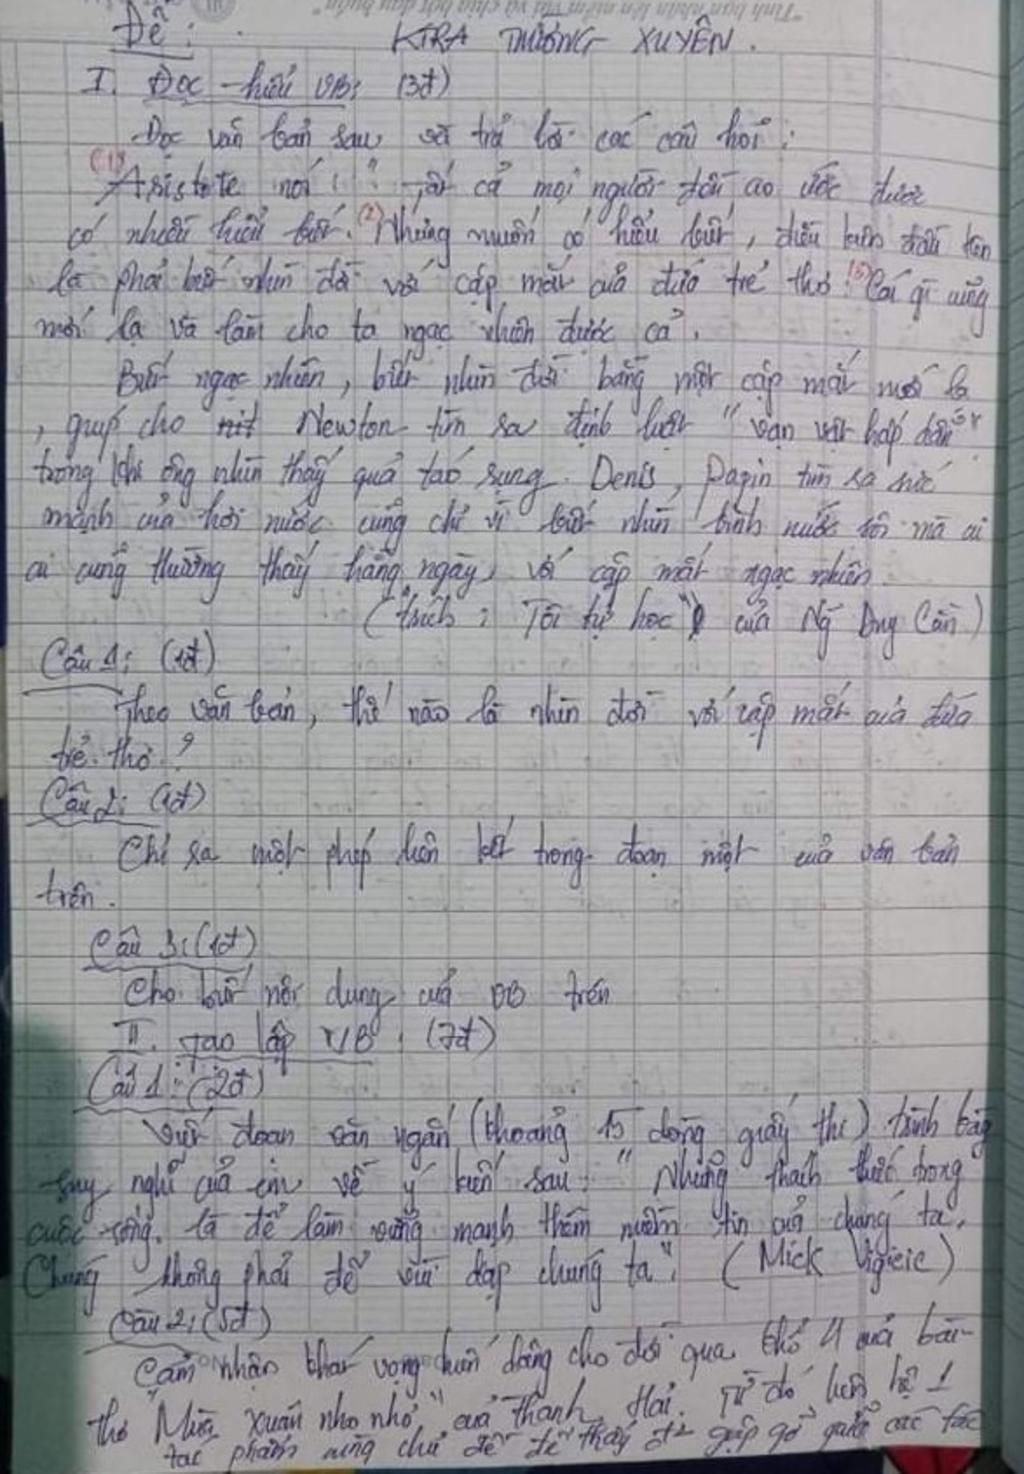 Đề:
KTRA THƯỜNG XUYÊN.
I. Đọc - hiểu VB: (3đ)
Đọc văn bản sau và trả lời các câu hỏi:
(1) Aristote nói: "Tất cả mọi người đều ao ước được
có nhiều hiểu biết. (2) Nhưng muốn có hiểu biết, điều kiện đầu tiên
là phải biết nhìn đời với cặp mắt của đứa trẻ thơ. (3) Cái gì cũng
mới lạ và làm cho ta ngạc nhiên được cả".
Biết ngạc nhiên, biết nhìn đời bằng một cặp mắt mới lạ
, giúp cho Newton tìm ra định luật "vạn vật hấp dẫn"
trong khi ông nhìn thấy quả táo rụng. Denis, Papin tìm ra sức
mạnh của hơi nước cũng chỉ vì biết nhìn bình nước sôi mà ai
ai cũng thường thấy hằng ngày, với cặp mắt ngạc nhiên.
(trích: Tôi tự học" của Ng Duy Cần)
Câu 1: (1đ)
Theo văn bản, thế nào là nhìn đời với cặp mắt của đứa
trẻ thơ?
Câu 2: (1đ)
Chỉ ra một phép liên kết trong đoạn một của văn bản
trên.
Câu 3: (1đ)
Cho biết nội dung của VB trên
II. Tạo lập VB: (7đ)
Câu 1: (2đ)
Viết đoạn văn ngắn (khoảng 15 dòng giấy thi) trình bày
suy nghĩ của em về ý kiến sau: "Những thách thức trong
cuộc sống là để làm vững mạnh thêm niềm tin của chúng ta.
Chúng không phải để vùi dập chúng ta". (Mick Vigieic)
Câu 2: (5đ)
Cảm nhận khát vọng hiến dâng cho đời qua khổ 4 của bài
thơ "Mùa xuân nho nhỏ" của Thanh Hải. Từ đó liên hệ 1
tác phẩm cùng chủ đề để thấy đc gặp gỡ giữa các tác